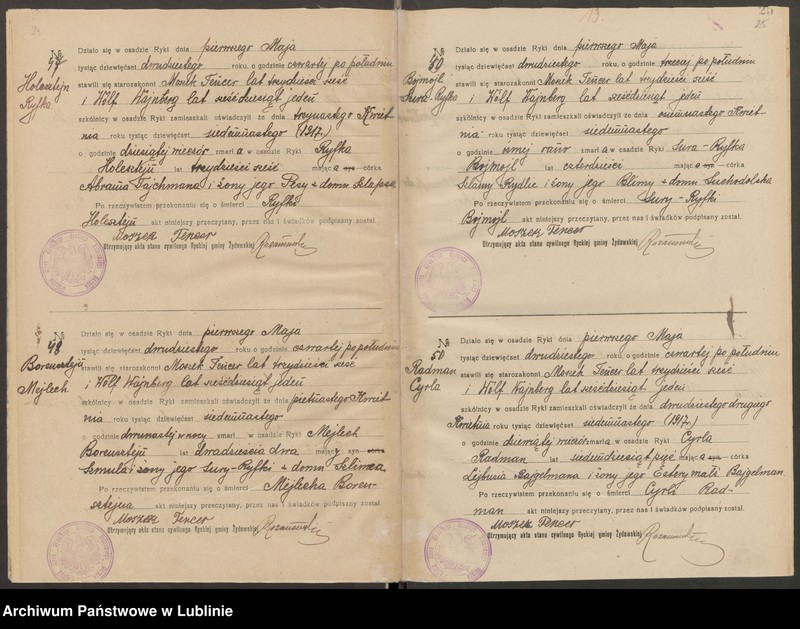 № 47
Holesztejn
Ryfka
Działo się w osadzie Ryki dnia pierwszego Maja
tysiąc dziewięćset dwudziestego roku, o godzinie czwartej po południu
stawili się starozakonni Morek Tencer lat trzydzieści sześć
i Wolf Wajnberg lat sześćdziesiąt jeden
szkólnicy w osadzie Ryki zamieszkali oświadczyli że dnia trzynastego Kwiet
nia roku tysiąc dziewięćset siedemnastego (1917)
o godzinie dziesiątej wieczór zmarła w osadzie Ryki Ryfka
lat trzydzieści sześć mająca syn córka
Abrama Fajchmana i żony jego Pesy z domu
Po rzeczywistem przekonaniu się o śmierci Ryfki
akt niniejszy przeczytany, przez nas i świadków podpisany został.
Moszek Tencer
Utrzymujący akta stanu cywilnego Ryckiej gminy Żydowskiej
№ 48
Mejlech
Działo się w osadzie Ryki dnia pierwszego Maja
tysiąc dziewięćset dwudziestego roku o godzinie czwartej po południu
stawili się starozakonni Morek Tencer lat trzydzieści sześć
i Wolf Wajnberg lat sześćdziesiąt jeden
szkólnicy w osadzie Ryki zamieszkali oświadczyli że dnia piętnastego Kwiet
nia roku tysiąc dziewięćset siedemnastego
o godzinie dwunastej w nocy zmarł w osadzie Ryki Mejlech
lat dwadzieścia dwa mający syn córka
Szmula i żony jego Sury-Ryfki z domu
Po rzeczywistem przekonaniu się o śmierci Mejlecha Boren-
sztejna akt niniejszy przeczytany, przez nas i świadków podpisany został.
Moszek Tencer
Utrzymujący akta stanu cywilnego Ryckiej gminy Żydowskiej
25
Bojmojl
Sura-Ryfka
Działo się w osadzie Ryki dnia pierwszego Maja
tysiąc dziewięćset dwudziestego roku, o godzinie po południu
stawili się starozakonni Morek Tencer lat trzydzieści sześć
i Wolf Wajnberg lat sześćdziesiąt jeden
szkólnicy w osadzie Ryki zamieszkali oświadczyli że dnia osiemnastego Kwiet
nia roku tysiąc dziewięćset siedemnastego
o godzinie ósmej rano zmarła w osadzie Ryki Sura-Ryfka
Bojmojl lat czterdzieści mająca syn córka
Szlamy Rydlic i żony jego Blimy z domu Suchodolska
Po rzeczywistem przekonaniu się o śmierci Sury-Ryfki
Bojmojl akt niniejszy przeczytany, przez nas i świadków podpisany został.
Moszek Tencer
Utrzymujący akta stanu cywilnego Ryckiej gminy Żydowskiej
№ 50
Radman
Cyrla
Działo się w osadzie Ryki dnia pierwszego Maja
tysiąc dziewięćset dwudziestego roku, o godzinie czwartej po południu
stawili się starozakonni Morek Tencer lat trzydzieści sześć
i Wolf Wajnberg lat sześćdziesiąt jeden
szkólnicy w osadzie Ryki zamieszkali oświadczyli że dnia dwudziestego drugiego
Kwietnia roku tysiąc dziewięćset siedemnastego (1917)
o godzinie dziewiątej wieczór zmarła w osadzie Ryki Cyrla
Radman lat siedemdziesiąt pięć mająca syn córka
Lejbusia Bajgelmana i żony jego Estery małż. Bajgelman
Po rzeczywistem przekonaniu się o śmierci Cyrli Rad-
man akt niniejszy przeczytany, przez nas i świadków podpisany został.
Moszek Tencer
Utrzymujący akta stanu cywilnego Ryckiej gminy Żydowskiej
Archiwum Państwowe w Lublinie